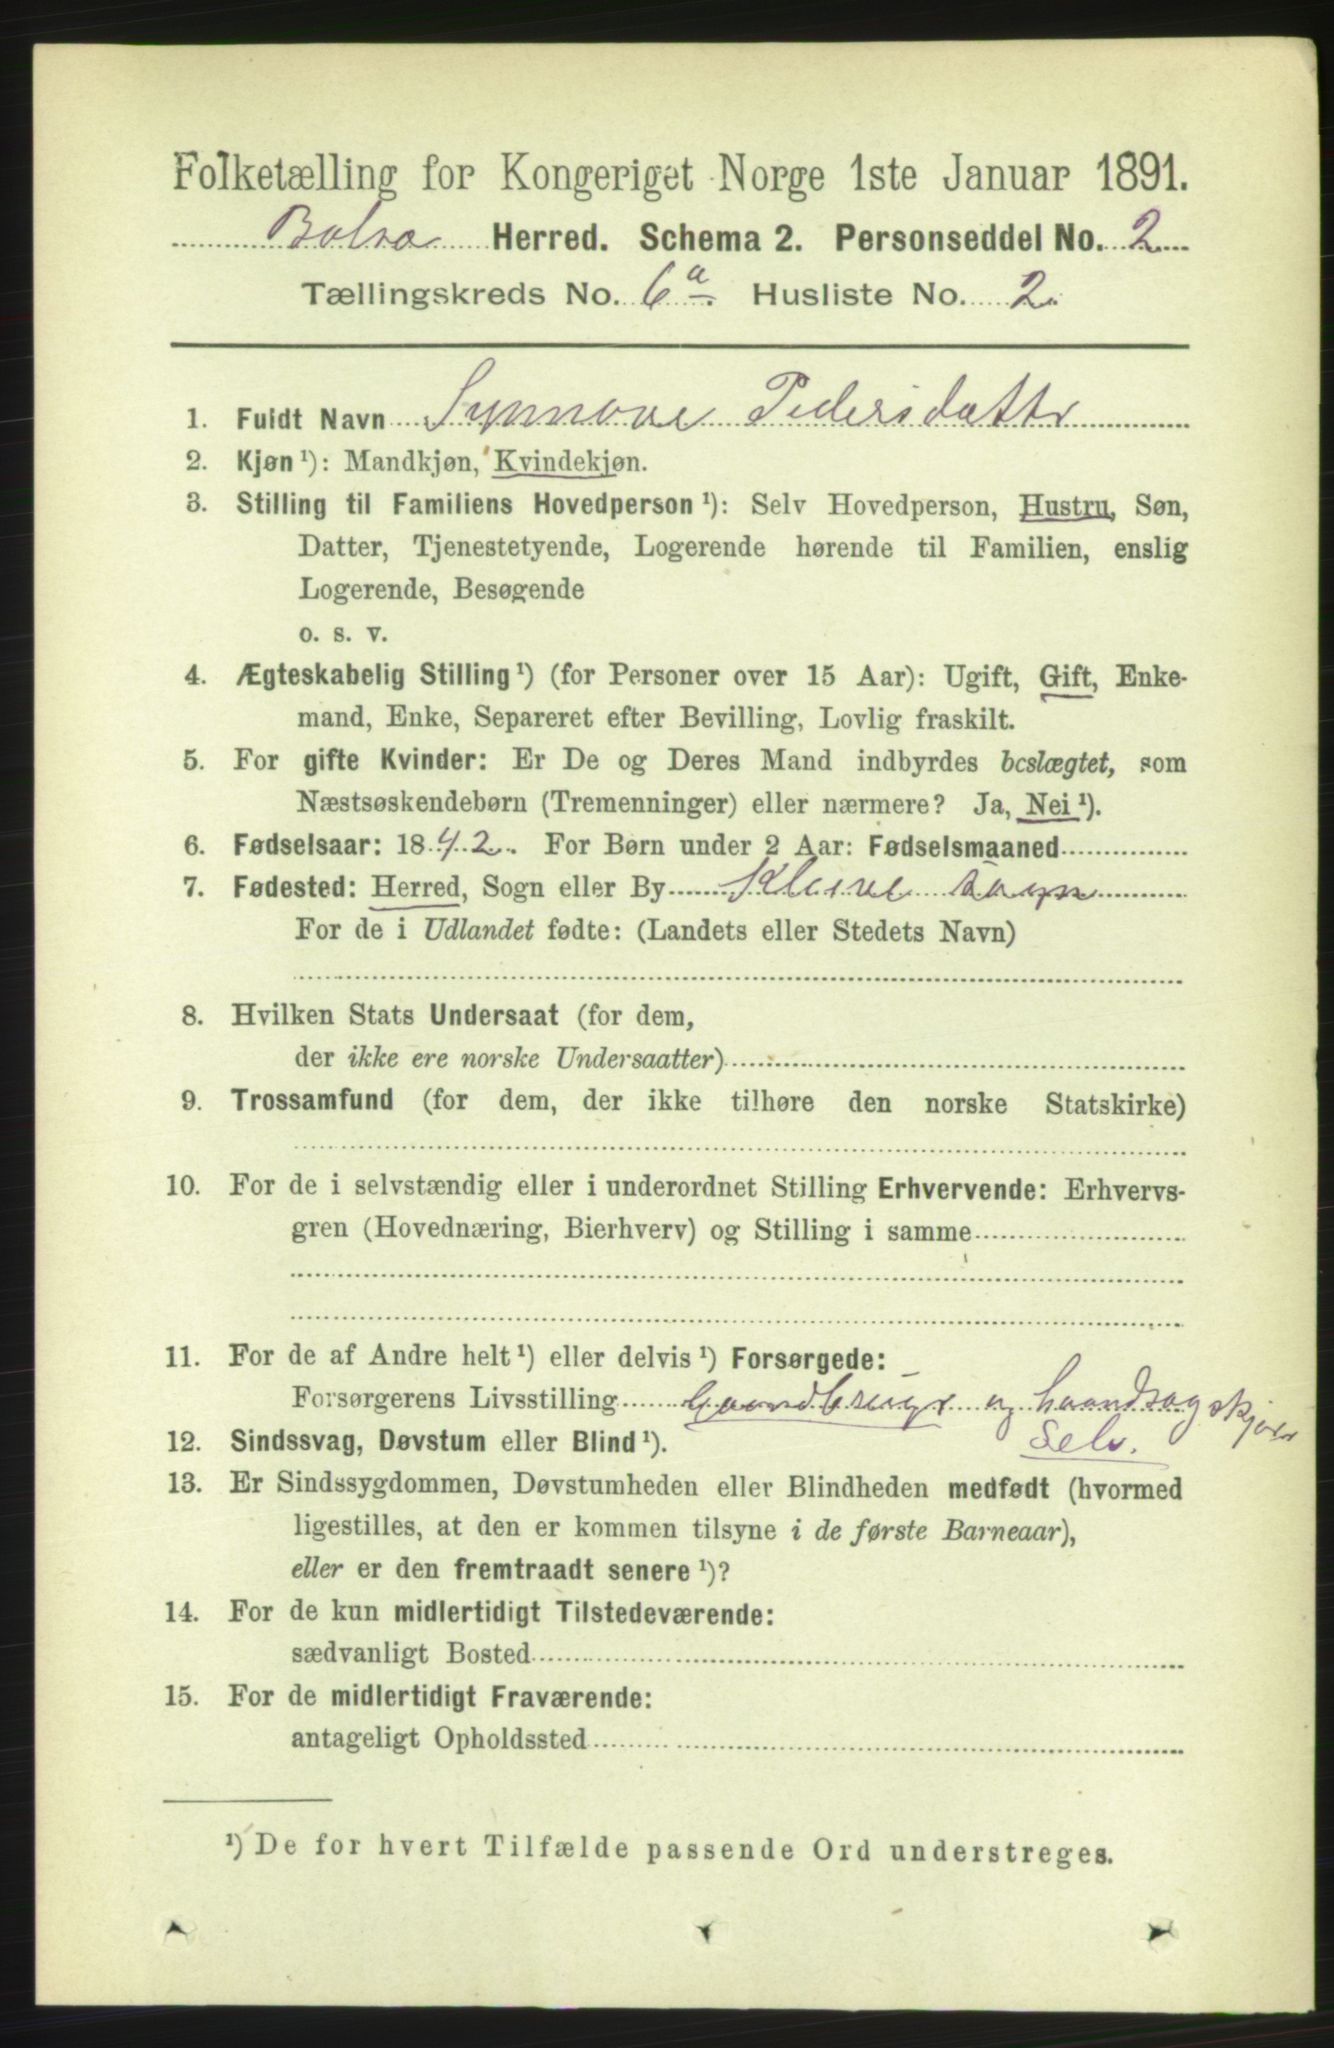 Folketælling for Kongeriget Norge 1ste Januar 1891.
Bolsø Herred. Schema 2. Personseddel No. 2
Tællingskreds No. 6a. Husliste No. 2.
1. Fuldt Navn Synnove Pedersdattr
2. Kjøn¹): Mandkjøn, Kvindekjøn.
3. Stilling til Familiens Hovedperson¹): Selv Hovedperson, Hustru, Søn,
Datter, Tjenestetyende, Logerende hørende til Familien, enslig
Logerende, Besøgende
o. s. v.
4. Ægteskabelig Stilling¹) (for Personer over 15 Aar): Ugift, Gift, Enke-
mand, Enke, Separeret efter Bevilling, Lovlig fraskilt.
5. For gifte Kvinder: Er De og Deres Mand indbyrdes beslægtet, som
Næstsøskendebørn (Tremenninger) eller nærmere? Ja, Nei¹).
6. Fødselsaar: 1842. For Børn under 2 Aar: Fødselsmaaned
7. Fødested: Herred, Sogn eller By Kleive sogn
For de i Udlandet fødte: (Landets eller Stedets Navn)
8. Hvilken Stats Undersaat (for dem,
der ikke ere norske Undersaatter)
9. Trossamfund (for dem, der ikke tilhøre den norske Statskirke)
10. For de i selvstændig eller i underordnet Stilling Erhvervende: Erhvervs-
gren (Hovednæring, Bierhverv) og Stilling i samme
11. For de af Andre helt¹) eller delvis¹) Forsørgede:
Forsørgerens Livsstilling Gaardbruger og haandsogskjører
12. Sindssvag, Døvstum eller Blind¹). Selv.
13. Er Sindssygdommen, Døvstumheden eller Blindheden medfødt (hvormed
ligestilles, at den er kommen tilsyne i de første Barneaar),
eller er den fremtraadt senere¹)?
14. For de kun midlertidigt Tilstedeværende:
sædvanligt Bosted
15. For de midlertidigt Fraværende:
antageligt Opholdssted
¹) De for hvert Tilfælde passende Ord understreges.